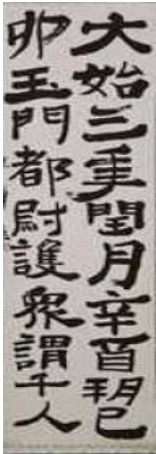 大始三年閏月辛酉朔己
卯玉門都尉護眾謂千人